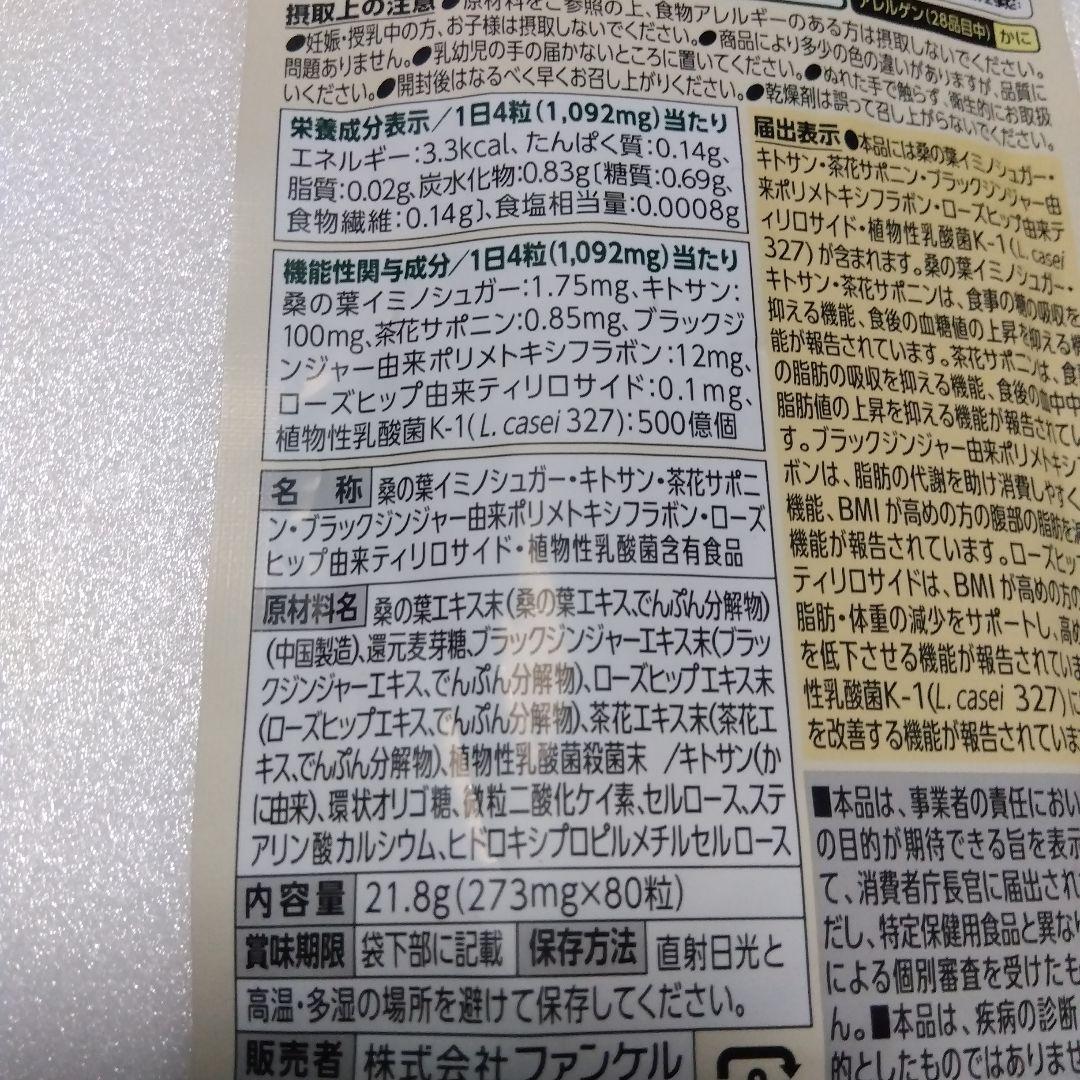 摂取上の注意 ●原材料をご参照の上、食物アレルギーのある方は摂取しないでください。
●妊娠・授乳中の方、お子様は摂取しないでください。●商品により多少の色の違いがありますが、品質に
問題ありません。●乳幼児の手の届かないところに置いてください。●ぬれた手で触らず、衛生的にお取扱
いください。●開封後はなるべく早くお召し上がりください。●乾燥剤は誤って召し上がらないでください。
アレルゲン(28品目中) かに
栄養成分表示/1日4粒(1,092mg)当たり
エネルギー:3.3kcal、たんぱく質:0.14g、
脂質:0.02g、炭水化物:0.83g〔糖質:0.69g、
食物繊維:0.14g〕、食塩相当量:0.0008g
機能性関与成分/1日4粒(1,092mg)当たり
桑の葉イミノシュガー:1.75mg、キトサン:
100mg、茶花サポニン:0.85mg、ブラックジ
ンジャー由来ポリメトキシフラボン:12mg、
ローズヒップ由来ティリロサイド:0.1mg、
植物性乳酸菌K-1(L. casei 327):500億個
名称 桑の葉イミノシュガー・キトサン・茶花サポニ
ン・ブラックジンジャー由来ポリメトキシフラボン・ローズ
ヒップ由来ティリロサイド・植物性乳酸菌含有食品
原材料名 桑の葉エキス末(桑の葉エキス、でんぷん分解物)
(中国製造)、還元麦芽糖、ブラックジンジャーエキス末(ブラッ
クジンジャーエキス、でんぷん分解物)、ローズヒップエキス末
(ローズヒップエキス、でんぷん分解物)、茶花エキス末(茶花エ
キス、でんぷん分解物)、植物性乳酸菌殺菌末 /キトサン(か
に由来)、環状オリゴ糖、微粒二酸化ケイ素、セルロース、ステ
アリン酸カルシウム、ヒドロキシプロピルメチルセルロース
内容量 21.8g(273mg×80粒)
賞味期限 袋下部に記載 保存方法 直射日光と
高温・多湿の場所を避けて保存してください。
販売者 株式会社ファンケル
届出表示 ●本品には桑の葉イミノシュガー・
キトサン・茶花サポニン・ブラックジンジャー由
来ポリメトキシフラボン・ローズヒップ由来テ
ィリロサイド・植物性乳酸菌K-1(L. casei
327)が含まれます。桑の葉イミノシュガー・
キトサン・茶花サポニンは、食事の糖の吸収を
抑える機能、食後の血糖値の上昇を抑える機
能が報告されています。茶花サポニンは、食事
の脂肪の吸収を抑える機能、食後の血中中
脂肪値の上昇を抑える機能が報告されてい
す。ブラックジンジャー由来ポリメトキシフ
ボンは、脂肪の代謝を助け消費しやすく
機能、BMIが高めの方の腹部の脂肪を減
機能が報告されています。ローズヒップ
ティリロサイドは、BMIが高めの方の
脂肪・体重の減少をサポートし、高め
を低下させる機能が報告されていま
性乳酸菌K-1(L. casei 327)に
を改善する機能が報告されていま
■本品は、事業者の責任におい
の目的が期待できる旨を表示
て、消費者庁長官に届出され
だし、特定保健用食品と異なり
による個別審査を受けたも
ん。■本品は、疾病の診断
的としたものではありませ